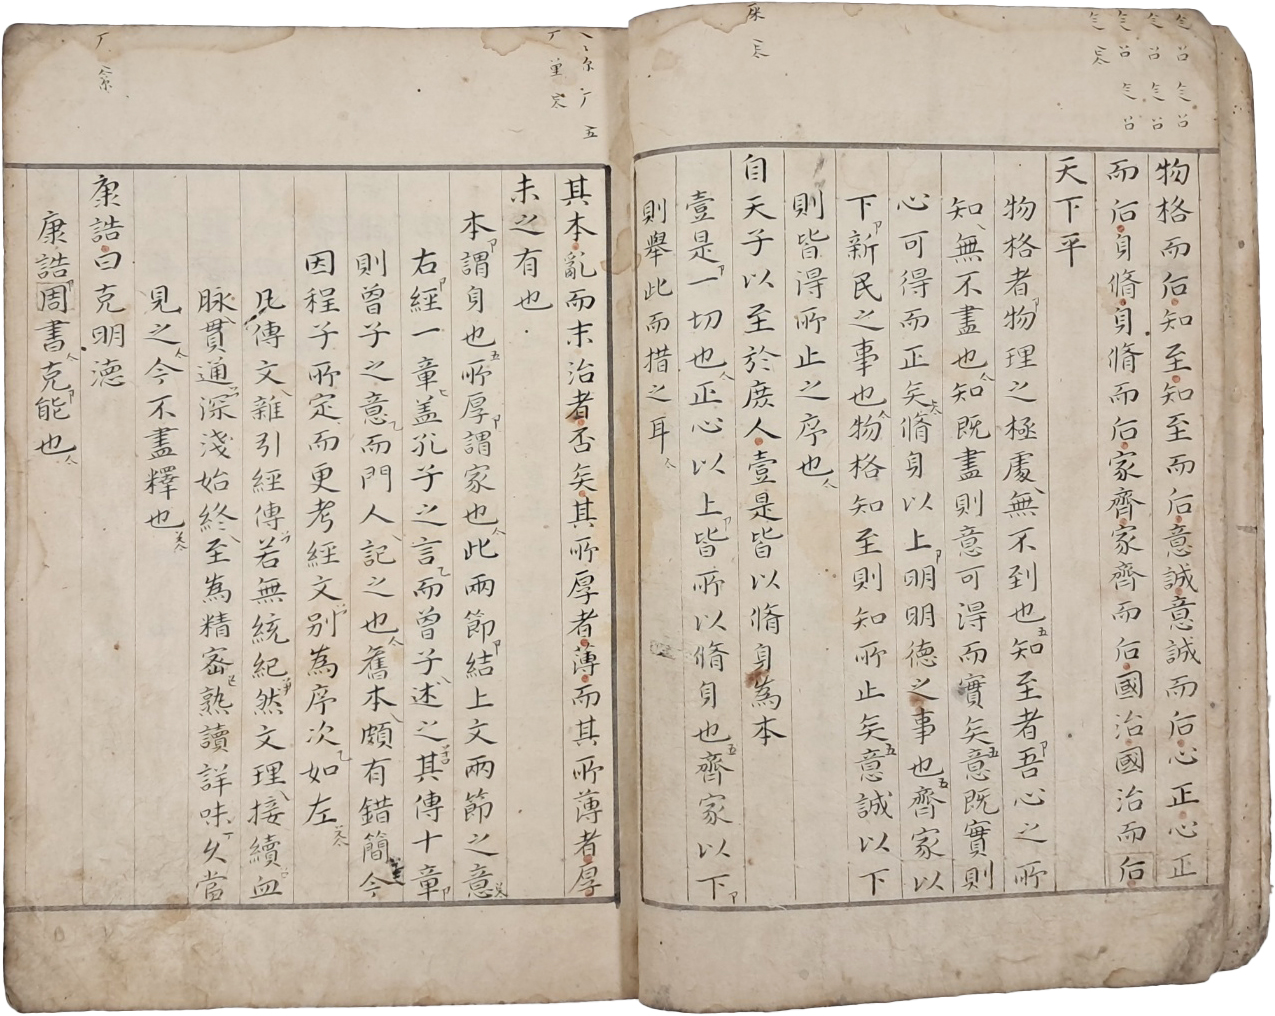 物格而后知至知至而后意誠意誠而后心正心正
而后身脩身脩而后家齊家齊而后國治國治而后
天下平
物格者物理之極處無不到也知至者吾心之所
知無不盡也知既盡則意可淂而實矣意既實則
心可得而正矣脩身以上明明德之事也齊家以
下新民之事也物格知至則知所止矣意誠以下
則皆淂所止之序也
自天子以至於庶人壹是皆以脩身為本
壹是一切也正心以上皆所以脩身也齊家以下
則舉此而措之耳
其本亂而末治者否矣其所厚者薄而其所薄者厚
未之有也
本謂身也所厚謂家也此兩節結上文兩節之意
右經一章盖孔子之言而曾子述之其傳十章
則曾子之意而門人記之也舊本頗有錯簡今
因程子所定而更考經文別為序次如左
凡傳文雜引經傳若無統紀然文理接續血
脉貫通深淺始終至為精宻熟讀詳味久當
見之今不盡釋也
康誥曰克明德
康誥周書克能也